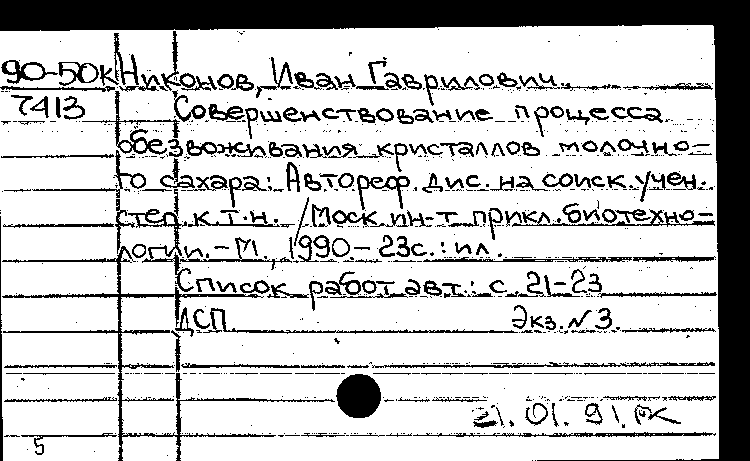 90-50к Никонов, Иван Гаврилович.
7413 Совершенствование процесса
обезвоживания кристаллов молочно-
го сахара: Автореф. дис. на соиск. учен.
степ. к.т.н. / Моск. ин-т прикл. биотехно-
логии. - М., 1990. - 23с.: ил.
Список работ авт.: с. 21-23
ДСП. Экз. N 3.
21.01.91.
5